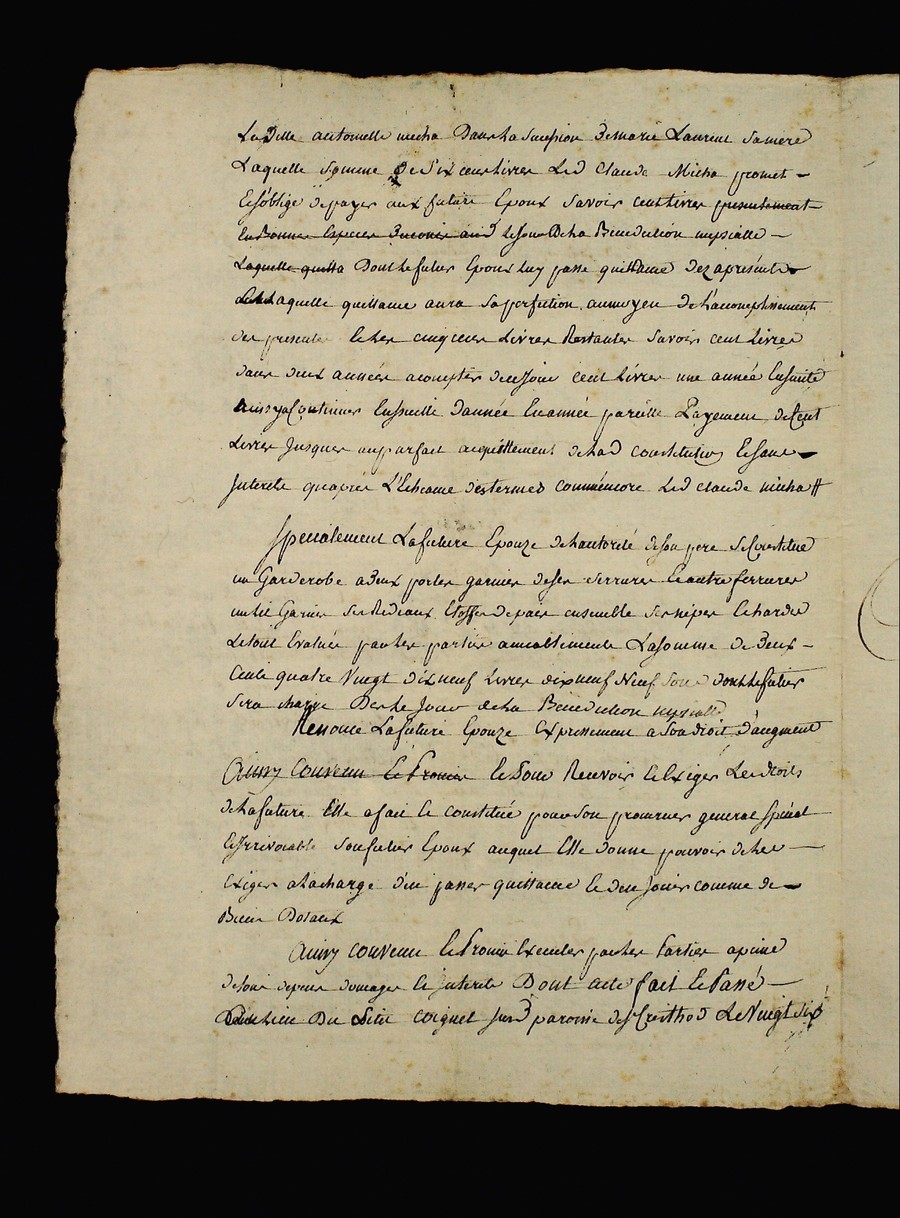 Ladte antoinette micha Dans la sucession De marie Laurent sa mere
Laquelle somme De six cens livres Led Claude Micha promet
Et s'oblige de payer aux futurs Epoux savoir cent livres presentement
En Bonnes Especes le jour De la Benediction nuptialle
Laquelle quitta Dont le futur Epoux luy passe quittance dez apresent
Laquelle quittance aura sa perfection au moyen de l'acomplissement
des presentes Et les cinq cens Livres Restantes savoir cent Livres
dans deux années a compter de ce jour cent Livres une année Ensuite
ainsy a Continuer Ensuitte d'année En année pareille Payement de Cent
Livres Jusques au parfait acquittement de lad constitution Et sans
Interets qu'apres L'Echeance des termes Led Claude micha
Specialement La future Epouze de l'autorité de son pere se Constitue
un Garderobe a Deux portes garnier de ses serrures Et autre ferrures
un lit Garnie de Rideaux Etoffe de ensemble ses nipes Et hardes
Le tout Evalué par les parties amiablement a La somme de Deux
Cents quatre Vingt dix neuf Livres dix neuf sous dont le futur
sera chargé Des le Jour de la Benediction nuptialle
Renonce La future Epouze Expressement a son droit d'augment
Ainsy Convenu Et Promis Et Pour Recevoir Et Exiger Les droits
de la future Elle a fait Et constitué pour son procureur general special
Et Irrevocable son futur Epoux auquel Elle donne pouvoir de les
Exiger a la charge d'en passer quittance Et d'en Jouir comme de
Biens Dotaux
Ainsy Convenu Et Promis Executer par les Parties a peine
de tous depens domages Et Interets Dont acte fait Et Passé
au Lieu Du susd paroisse de Le Vingt six